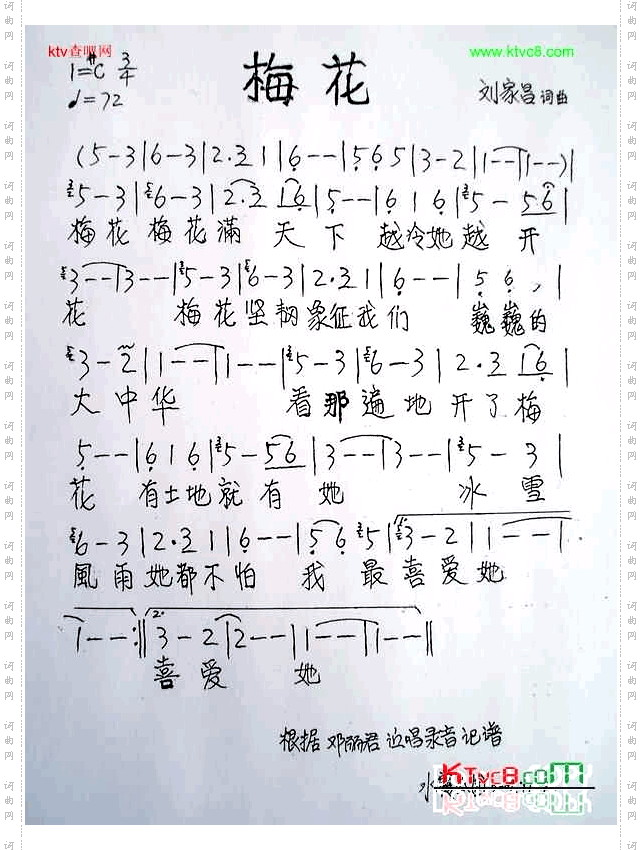 ktv查吧网
www.ktvc8.com
1=#C 3/4
♩=72
梅花
刘家昌 词曲
(5-3|6-3|2·31|6--|565|3-2|1--|1--)|
5-3|6-3|2·3 16|5--|616|5-56|
梅花 梅花滿 天下 越冷她越开
3--|3--|5-3|6-3|2·31|6--|56,|
花 梅花坚韧象征我们 巍巍的
3-2|1--|1--|5-3|6-3|2·3 16|
大中华 看那遍地开了梅
5--|616|5-56|3--|3--|5-3|
花 有土地就有她 冰雪
6-3|2·31|6--|56 5|1.3-2|1--|
風雨她都不怕 我最喜爱她
1--:||2.3-2|2--|1--|1--||
喜爱 她
根据邓丽君 演唱录音记谱
KTvc8.com
词曲网